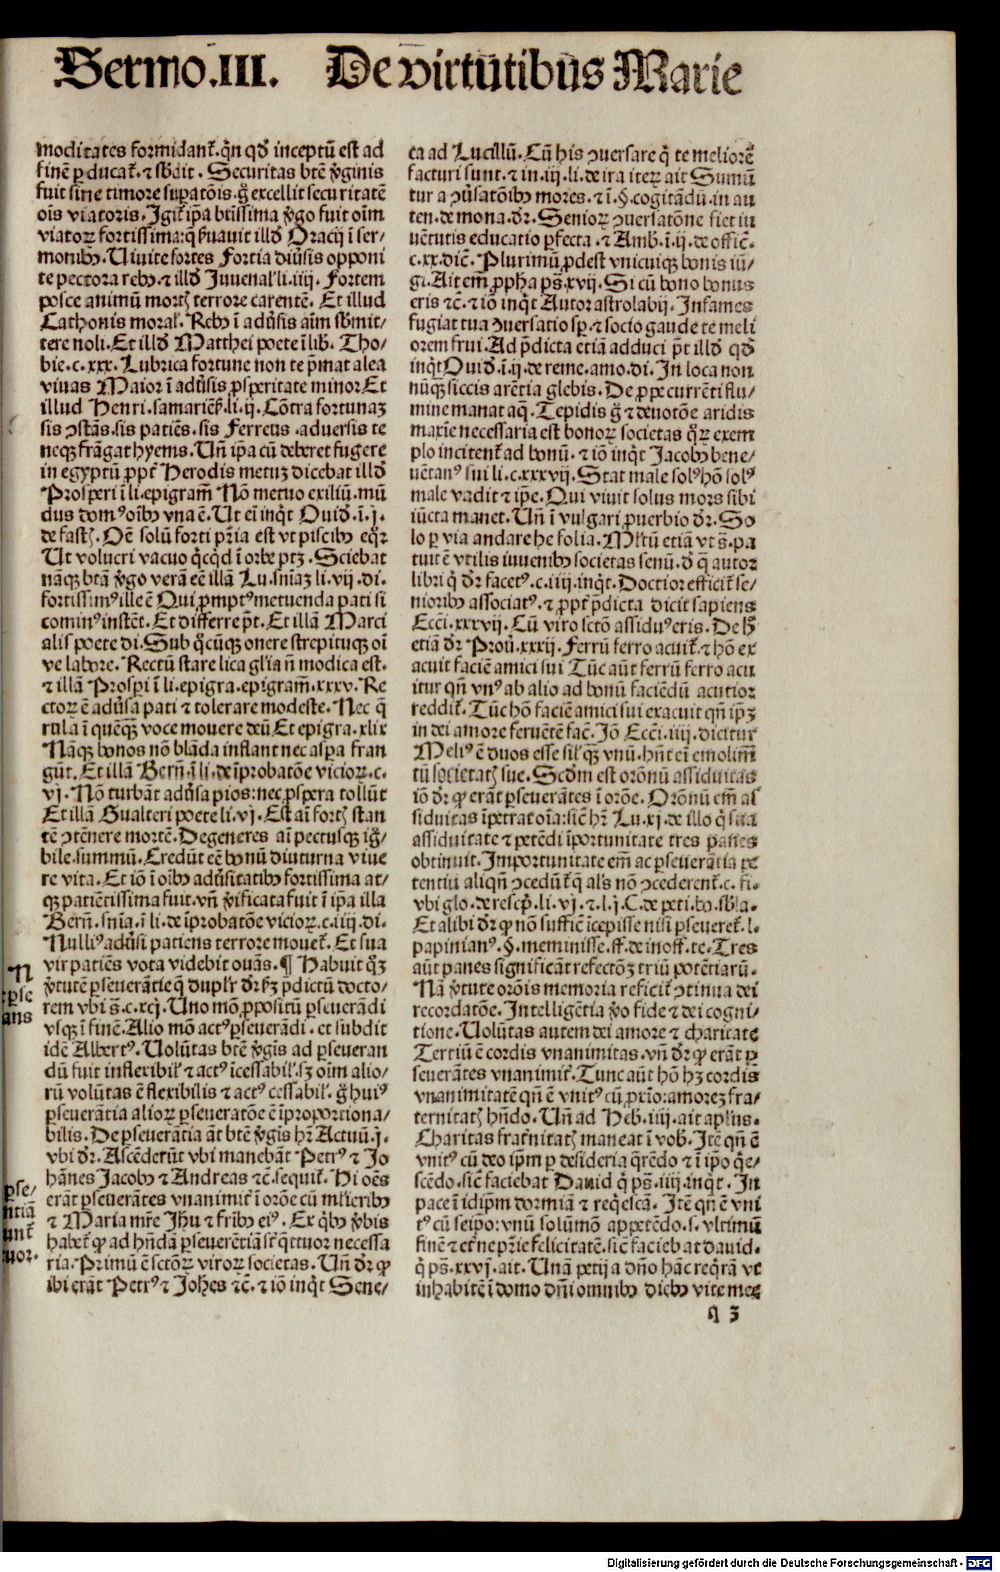 Sermo.III. De virtutibus Marie
moditates formidant᷑.qn̄ qd̄ inceptū est ad
finē ꝑducat᷑.⁊ sb̄dit. Securitas btē v̄ginis
fuit sine timore suꝑatōis.g̊ excellit securitatē
oīs viatoris. Igit᷑ ip̄a btīssima v̄go fuit oīm
viatoꝝ fortissima:
Viuite fortes Fortia diūsis opponi
te pectora reb⁹ ⁊ illd̄ Juuenal᷑.li.iiij. Fortem
posce animū mortꝭ terrore carentē. Et illud
Cathonis moral᷑. Reb⁹ ī adūsis aīm sb̄mit-
tere noli. Et illd̄ Matthei poete ī lib̄. Tho-
bie.c.xxx. Lubrica fortune non te p̄mat alea
viuas Maior ī adūsis ꝓsꝑitate minor Et
illud Henri.samariēs̄.li.ij. Cōtra fortunaꝫ
sis ꝯstās.sis patiēs.sis Ferreus.aduersis te
neqꝫ frāgat hyems. Vn̄ ip̄a cū deberet fugere
in egyptū ꝓpt᷑ Herodis metuꝫ dicebat illd̄
Prosperi ī li.epigram̄ Nō metuo exiliū.mū
dus dom⁹ oīb⁹ vna ē. Ut eī inq̇t Ouid̄.ī.j.
de fastꝭ. Oē solū forti pr̄ia est vt piscib⁹ eq̄r
Ut volucri vacuo q̇cq̇d ī orbe ptꝫ. Sciebat
nāqꝫ btā v̄go verā eē illā Lu.sn̄iaꝫ li.vij.di.
fortissim⁹ ille ē Qui ꝓmpt⁹ metuenda pati si
comin⁹ instēt. Et differre pt̄. Et illā Marci
alis poete di. Sub q̇cūqꝫ onere strepituqꝫ oī
ve labore. Rectū stare lica gl̄ia n̄ modica est.
⁊ illā Prosꝑi ī li.epigra.epigram̄.xxxv. Re
ctoꝝ ē adūsa pati ⁊ tolerare modeste. Nec q̄
rula ī quēqꝫ voce mouere deū Et epigra.xlix
Nāqꝫ bonos nō blāda inflant nec asꝑa fran
gūt. Et illā Bern̄.ī li.de īprobatōe vicioꝝ.c.
vj. Nō turbāt adūsa pios:nec ꝓspera tollūt
Et illā Gualteri poete li.vj. Est aī fortꝭ stan
tē ꝯtēnere mortē. Degeneres aī pectusqꝫ ig̊-
bile.summū. Credūt eē bonū diuturna viue
re vita. Et iō ī oīb⁹ adūsitatib⁹ fortissima at-
qꝫ patiētissima fuit.vn̄ v̄ificata fuit ī ip̄a illa
Bern̄.sn̄ia.ī li.de īprobatōe vicioꝝ.c.iiij.di.
Nulli⁹ adūsi patiens terrore mouet᷑. Et sua
vir patiēs vota videbit ouās. ¶ Habuit q̄ꝫ
v̄tutē ꝑseuerātie q̄ dupl᷑r dr̄.ẜꝫ p̄dictū docto-
rem vbi s̄.c.xcj. Uno mō ꝓpositū ꝑseuerādi
vsqꝫ ī finē. Alio mō act⁹ ꝑseuerādi. et subdit
idē Albert⁹. Uolūtas btē v̄gis ad ꝑseueran
dū fuit inflexibil᷑ ⁊ act⁹ īcessabil᷑.sꝫ oīm alio-
rū volūtas ē flexibilis ⁊ act⁹ cessabil᷑. g̊ hui⁹
ꝑseuerātia alioꝝ ꝑseueratōe ē īproportiona-
bilis. De ꝑseuerātia āt btē v̄gis hr̄. Actuū.j.
vbi dr̄. Ascēderūt vbi manebāt Petr⁹ ⁊ Jo
hānes Jacob⁹ ⁊ Andreas ⁊c̄.sequit᷑. Hi oēs
erāt ꝑseuerātes vnanimit᷑ ī orōe cū ml̄ierib⁹
⁊ Maria mr̄e Jh̄u ⁊ fr̄ib⁹ ei⁹. Ex q̇b⁹ v̄bis
habet᷑ ꝙ ad hn̄dā ꝑseuerētiā st̄ q̇ttuor necessa
ria. Primū ē sctōꝝ viroꝝ societas. Vn̄ dr̄ ꝙ
ibi erāt Petr⁹ ⁊ Joh̄es ⁊c̄.⁊ iō inq̇t Sene-
N
ꝑse
ans
ꝑse-
ntiā
unt᷑
uor.
ca ad Lucillū. Cū his ꝯuersare q̇ te meliorē
facturi sunt.⁊ in.iij.li.de ira iteꝝ ait Sumū
tur a ꝯūsatōib⁹ mores.⁊ ī.§.cogitādū.in au
ten.de mona.dr̄. Senioꝝ ꝯuersatōne fiet iu
uētutis educatio ꝑfecta.⁊ Amb̄.ī.ij.de offic̄.
c.xx.dic̄. Plurimū ꝓdest vnicuiqꝫ bonis iū-
gi. Ait em̄ ꝓph̄a ps̄.xvij. Si cū bono bonus
eris ⁊c̄.⁊ iō inq̇t Autor astrolabij. Infames
fugiat tua ꝯuersatio sꝑ.⁊ socio gaude te meli
orem frui. Ad p̄dicta etiā adduci pt̄ illd̄ qd̄
inq̇t Ouid̄.ī.ij.de reme.amo.di. In loca non
nūq̄ siccis arētia glebis. De ꝓpe currēti flu-
mine manat aq̄. Tepidis g̊ ⁊ deuotōe aridis
maxīe necessaria est bonoꝝ societas q̄ꝝ exem
plo incitent᷑ ad bonū.⁊ iō inq̇t Jacob⁹ bene-
uētan⁹ sui li.c.xxxvij. Stat male sol⁹ hō sol⁹
male vadit ⁊ ip̄e. Qui viuit solus mors sibi
iūcta manet. Vn̄ ī vulgari ꝓuerbio dr̄. So
lo ꝑ via andare he folia. Ml̄tū etiā vt s̄.pa
tuit ē vtilis iuuenib⁹ societas senū.d̄ q̄ autor
libri q̇ dr̄ facet⁹.c.iiij.inq̇t. Doctior efficit᷑ se-
niorib⁹ associat⁹.⁊ ꝓpt᷑ p̄dicta dicit sapiens
Ecci.xxxvij. Cū viro sctō assidu⁹ eris. De h̊
etiā dr̄ Proū.xxxij. Ferrū ferro acuit᷑.⁊ hō ex
acuit faciē amici sui Tūc aūt ferrū ferro acu
itur qn̄ vn⁹ ab alio ad bonū faciēdū acutior
reddit᷑. Tūc hō faciē amici sui exacuit qn̄ ip̄ꝫ
in dei amore feruētē fac̄. Jō Ecci.iiij.dicitur
Meli⁹ ē duos esse sil᷑ q̄ꝫ vnū.hn̄t eī emolim̄
tū societatꝭ sue. Scd̄m est orōnū assiduitas
iō dr̄ ꝙ erāt ꝑseuerātes ī orōe. Orōnū em̄ as
siduitas īpetrat oīa:sic̄ hr̄ Lu.xj.de illo q̇ sua
assiduitate ⁊ petēdi īportunitate tres panes
obtinuit. Importunitate em̄ ac ꝑseuerātia pe
tentiū aliqn̄ ꝯcedūt᷑ q̄ al̄s nō ꝯcederent᷑.c.fi.
vbi glo.de rescp̄.li.vj.⁊.l.j.C.de peti.bo.sb̄la.
Et alibi dr̄ ꝙ nō suffic̄ īcepisse nisi ꝑseueret᷑.l.
papinian⁹.§.meminisse.ff.de inoff.te. Tres
aūt panes significāt refectōꝫ triū potētiarū.
Nā v̄tute orōis memoria reficit᷑ ꝯtinua dei
recordatōe. Intelligētia v̄o fide ⁊ dei cogni-
tione. Uolūtas autem dei amore ⁊ charitate
Tertiū ē cordis vnanimitas.vn̄ dr̄ ꝙ erāt ꝑ
seuerātes vnanimit᷑. Tunc aūt hō hꝫ cordis
vnanimitatē qn̄ ē vnit⁹ cū ꝓxīo:amoreꝫ fra-
ternitatꝭ hn̄do. Vn̄ ad Heb̄.iiij.ait apl̄us.
Charitas frat᷑nitatꝭ maneat ī vob̄. Itē qn̄ ē
vnit⁹ cū deo ip̄m ꝑ desideria q̄rēdo ⁊ ī ip̄o q̇e-
scēdo.sic̄ faciebat Dauid q̇ ps̄.iiij.inq̇t. In
pace ī idip̄m dormiā ⁊ reqescā. Itē qn̄ ē vni
t⁹ cū seip̄o:vnū solūmō appetēdo.s.vltimū
finē ⁊ et᷑ne pr̄ie felicitatē.sic̄ faciebat dauid.
q̇ ps̄.xxvj.ait. Unā petij a dn̄o hāc reqrā vt
inhabitē ī domo dn̄i omnib⁹ dieb⁹ vite mee
q 3
Digitalisierung gefördert durch die Deutsche Forschungsgemeinschaft - DFG